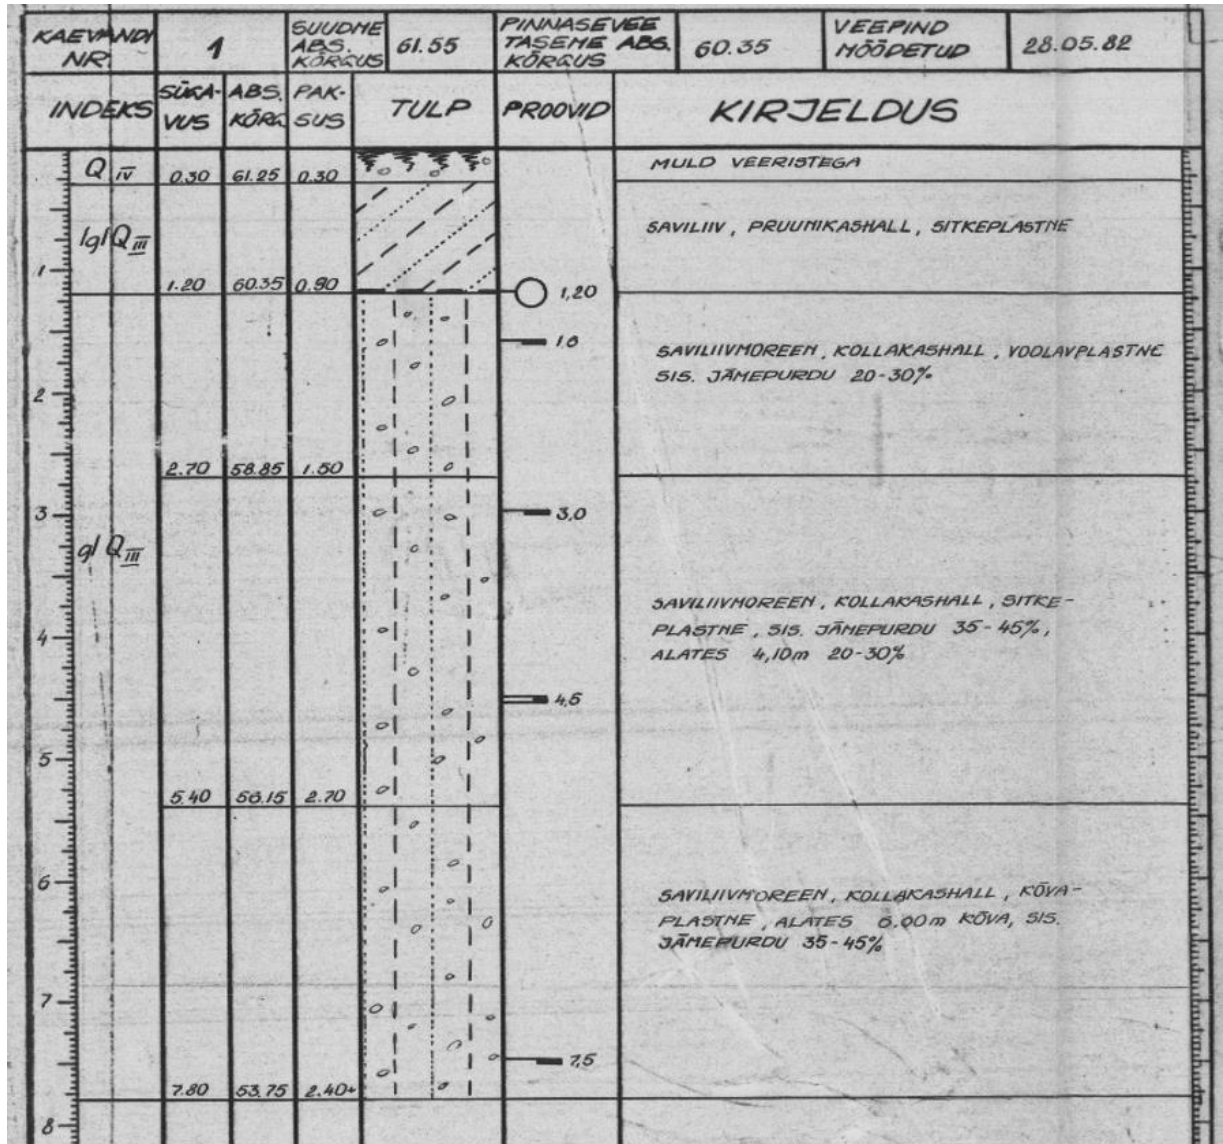 KAEVANDI NR.
1
SUUDME ABS. KÕRGUS
61.55
PINNASEVEE TASEME ABS. KÕRGUS
60.35
VEEPIND MÕÕDETUD
28.05.82
INDEKS
SÜGA-VUS
ABS. KÕRG.
PAK-SUS
TULP
PROOVID
KIRJELDUS
Q IV
0.30 61.25 0.30
MULD VEERISTEGA
lgl Q III
SAVILIIV, PRUUNIKASHALL, SITKEPLASTNE
1
1.20 60.35 0.90
1,20
1.6
SAVILIIVMOREEN, KOLLAKASHALL, VOOLAVPLASTNE
SIS. JÄMEPURDU 20-30%
2
2.70 58.85 1.50
3
3,0
gl Q III
SAVILIIVMOREEN, KOLLAKASHALL, SITKE-
PLASTNE, SIS. JÄMEPURDU 35-45%,
ALATES 4,10m 20-30%
4
4,5
5
5.40 56.15 2.70
6
SAVILIIVMOREEN, KOLLAKASHALL, KÕVA-
PLASTNE, ALATES 6.00m KÕVA, SIS.
JÄMEPURDU 35-45%
7
7,5
7.80 53.75 2.40+
8